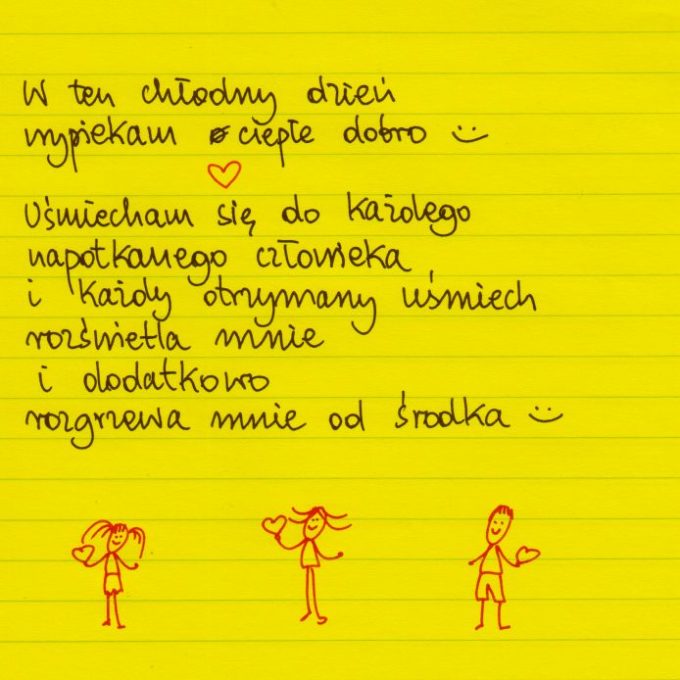 W ten chłodny dzień
wypiekam ciepłe dobro :)
Uśmiecham się do każdego
napotkanego człowieka
i każdy otrzymany uśmiech
rozświetla mnie
i dodatkowo
rozgrzewa mnie od środka :)